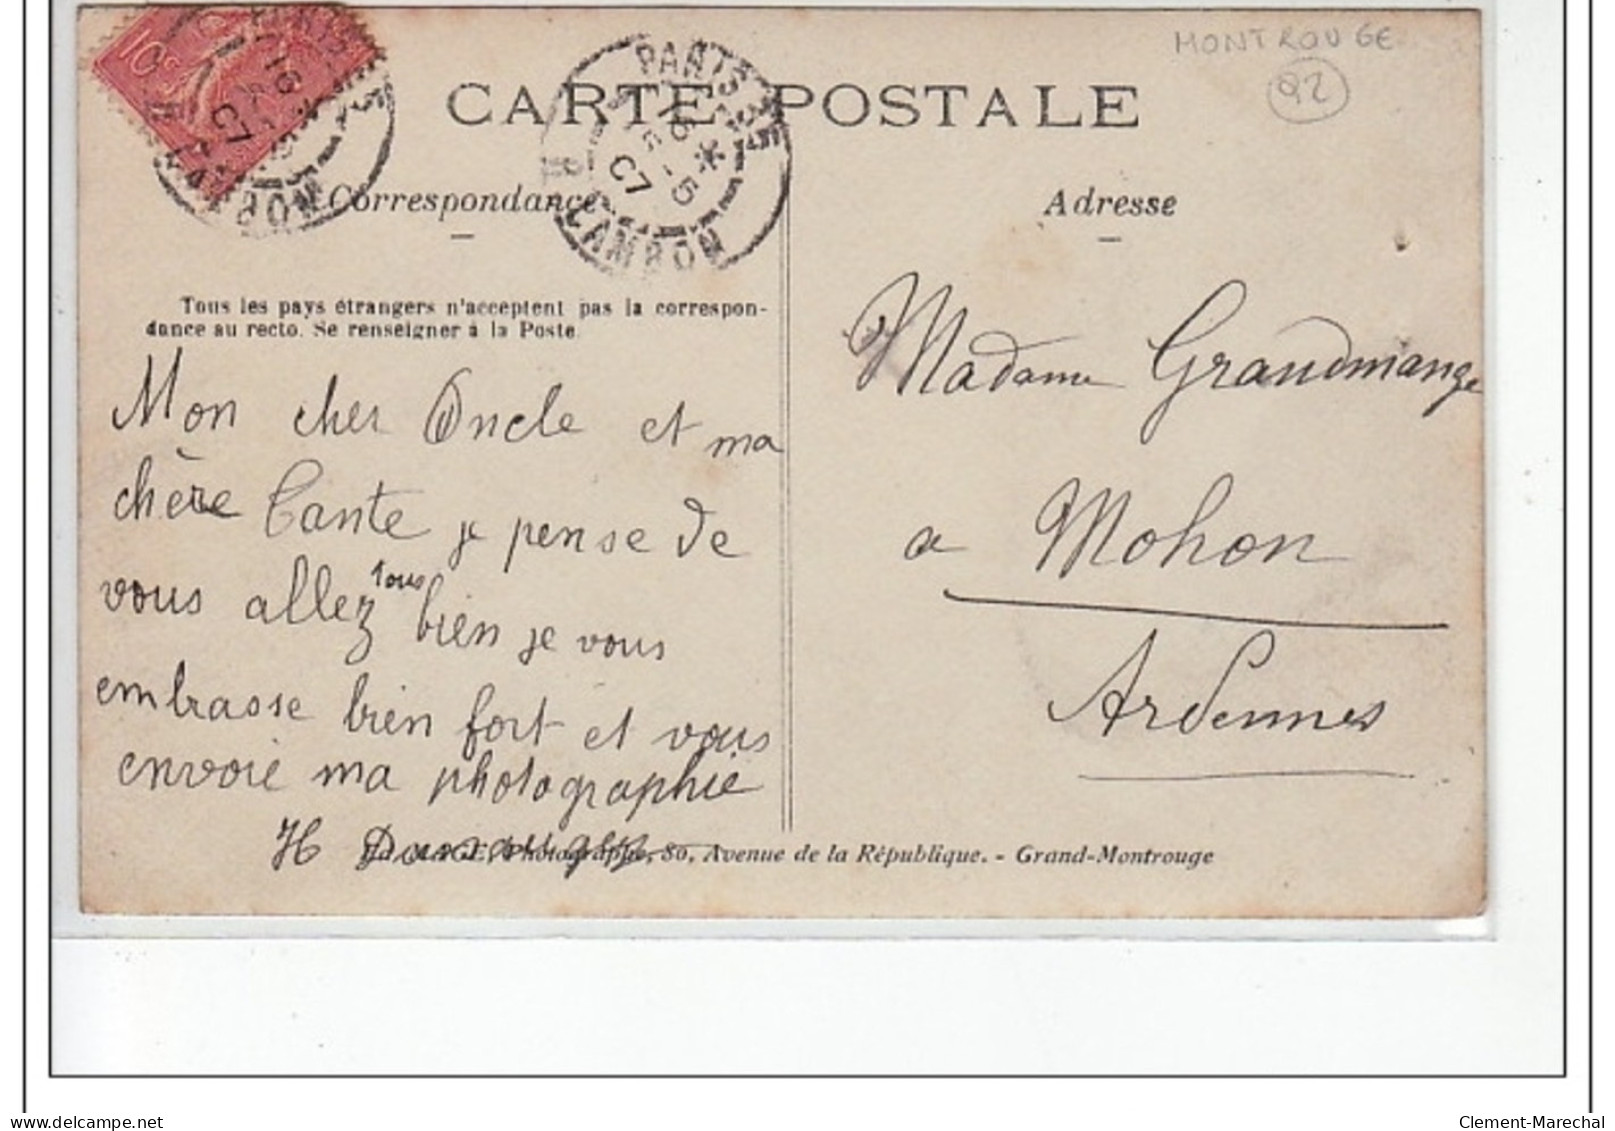 MONTROUGE
92
10c
PARIS
16 * 5 - 5
07
R. CAMBON
CARTE POSTALE
Correspondance
Adresse
Tous les pays étrangers n'acceptent pas la correspon-
dance au recto. Se renseigner à la Poste.
Mon cher Oncle et ma
chère Tante je pense de
vous allez tous bien je vous
embrasse bien fort et vous
envoie ma photographie
H
Madame Grandmange
a Mohon
Ardennes
Photographe, 80, Avenue de la République. - Grand-Montrouge
Clement-Marechal